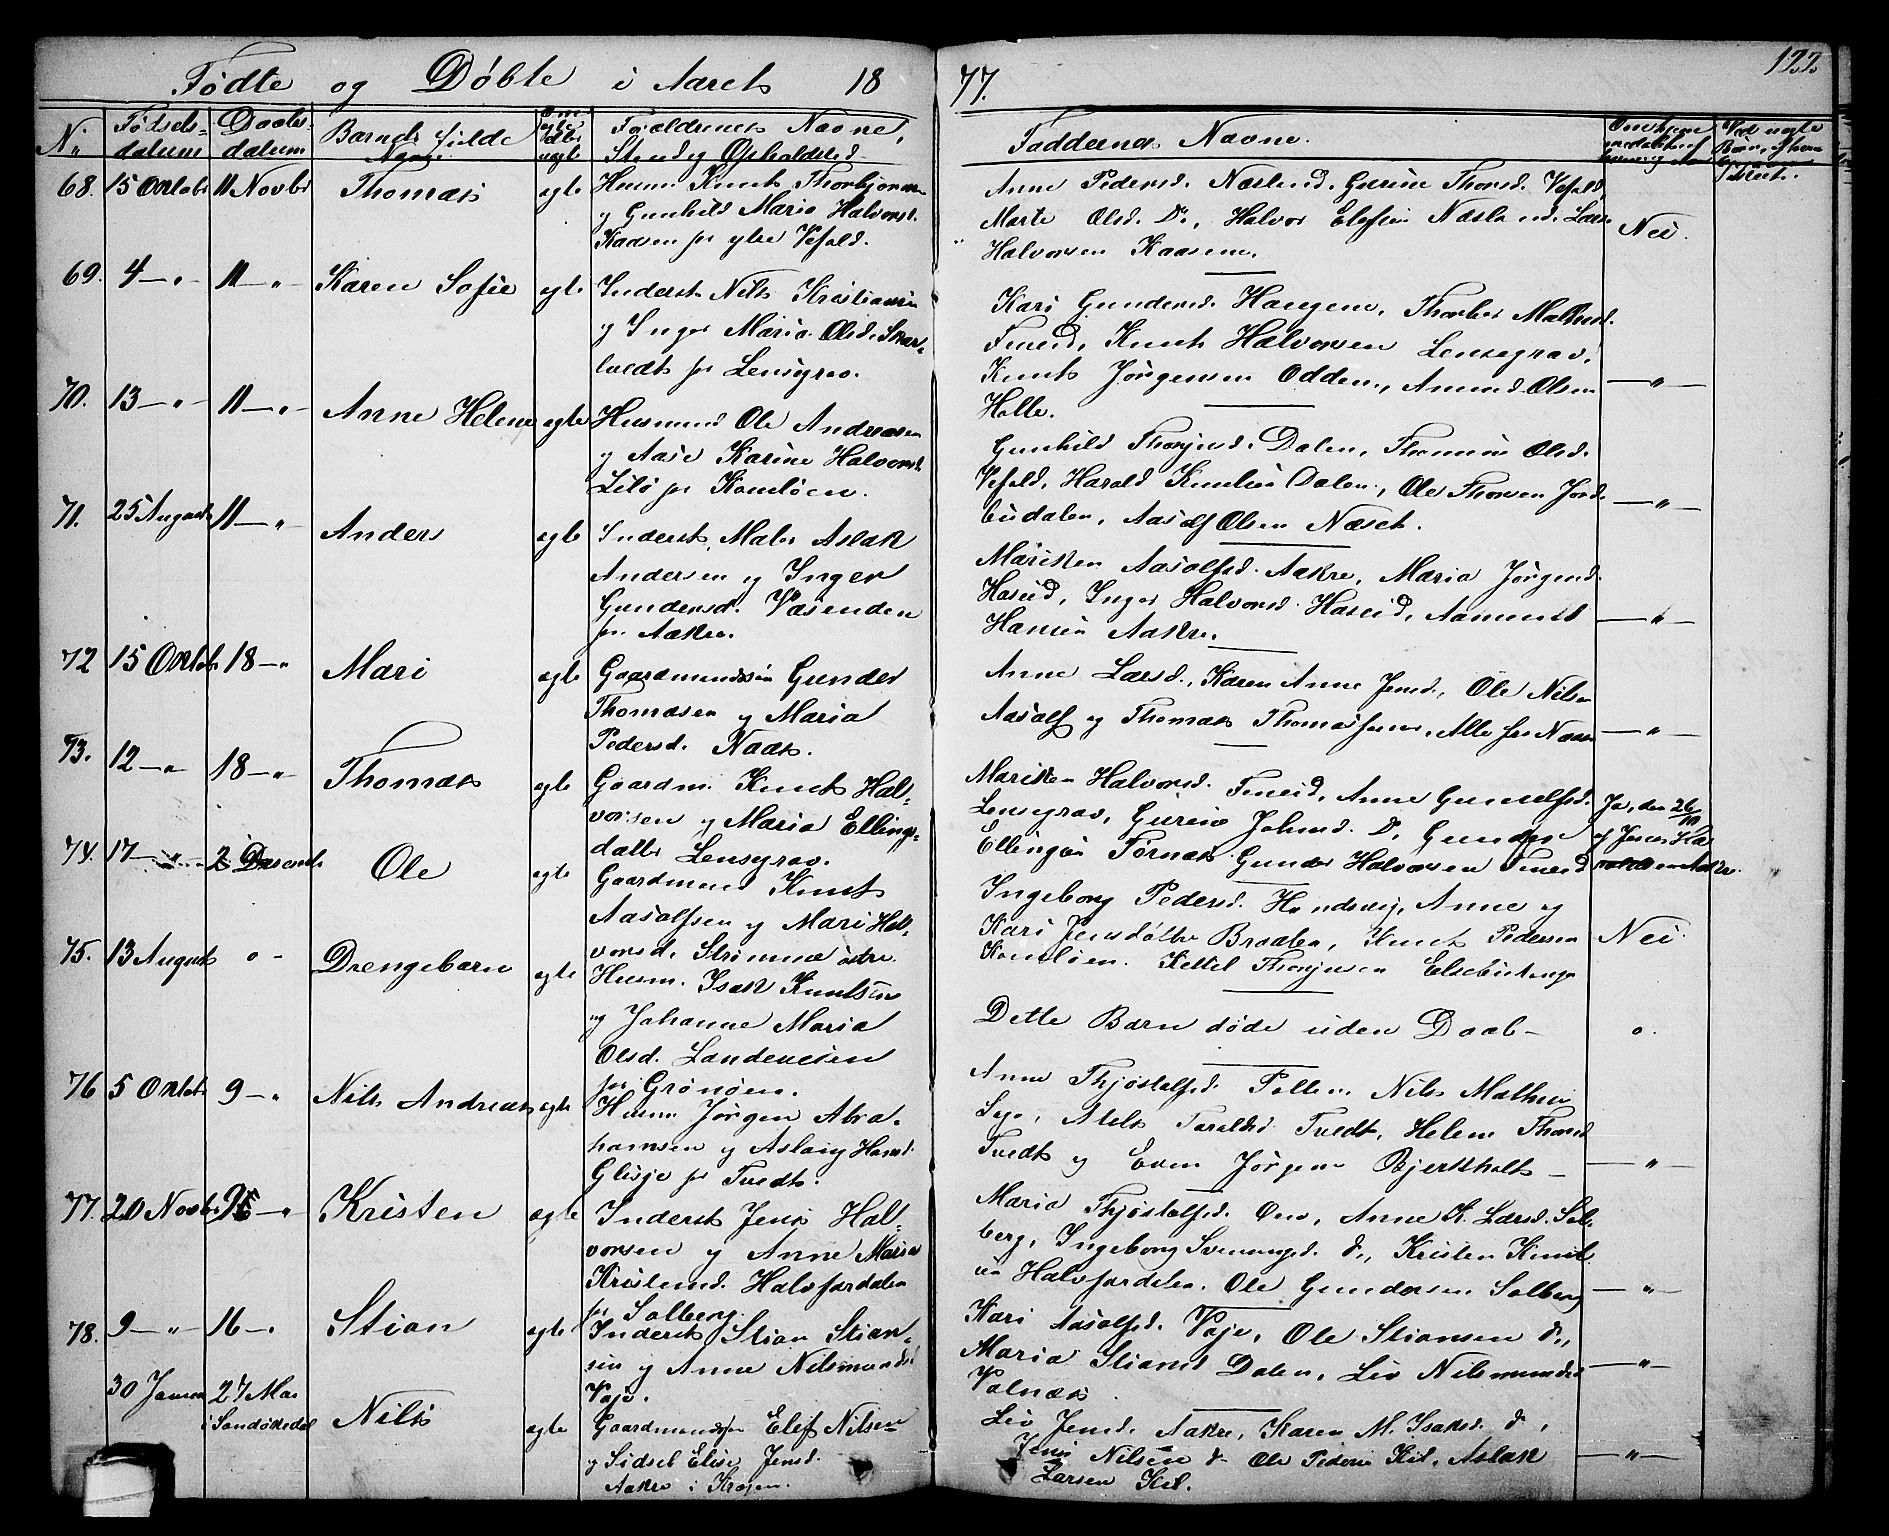 Fødte og Døbte i Aaret 18
77.
122
No
Fødsels-
datum
Daabs-
datum
Barnets fulde
Navn
Forældrenes Navne,
Stand og Opholdsted.
Faddernes Navne.
68. 15 Oktobr 11 Novbr Thomas ægte
Husm Knut Thorbjørnsen
og Gunhild Maria Halvorsd.
Kaasen for ytre Vefald.
Anne Pedersd. Næslund, Gurine Thorsd. Vefald,
Marte Olsd. Do, Halvor Elefsen Næslund, Lars
Halvorsen Kaasen.
Nei.
69. 4 — " 11 — " Karen Sofie ægte
Inderst Nils Kristiansen
og Inger Maria Olsd.
tvedt for Lensegrav.
Kari Gundersd. Haugen, Thorber
Fineid, Knut Halvorsen Lensegrav,
Knut Jørgensen Odden, Amund Olsen
Halle.
— " —
70. 13 — " 11 — " Anne Helene ægte
Husmand Ole Andreasen
og Aase Karine Halvorsd.
Lilø for Komløen.
Gunhild Thorjusd. Dalen, Olsd.
Vefald, Harald Knutsen Dalen, Ole Thorsen Jord-
budalen, Aasolf Olsen Næset.
— " —
71. 25 August 11 — " Anders ægte
Inderst, Maler Aslak
Andersen og Inger
Gundersd. Vasenden
for Aakre.
Mariken Aasolfsd. Aakre, Maria Jørgensd.
Haseid, Inger Halvorsd. Haseid, Aamund
Hansen Aakre.
— " —
72 15 Oktob 18 — " Mari ægte
Gaardmandssøn Gunder
Thomasen og Maria
Pedersd. Naas.
Anne Larsd., Karen Anne Jensd., Ole Nilsen
Aasolf og Thomas Thomassen, Alle fra Naas
— " —
73. 12 — " 18 — " Thomas ægte
Gaardm. Knut Hal-
vorsen og Maria Ellings-
datter Lensegrav.
Mariken Halvorsd. Fineid, Anne Gunulfsd.
Lensegrav, Gurine Johnsd. Do, Gunder
Ellingsen Førnæs Gunder Halvorsen Fineid
Ja, den 26/10
af Jens
Aakre.
74. 17 — " 2 Decemb. Ole ægte
Gaardmand Knut
Aasolfsen og Mari Hal-
vorsd. Strømme østre.
Ingeborg Pedersd. Handsvig, Anne og
Kari Jensdøttre Braaten, Knut Pedersen
Komløen. Kettil Thorjusen
Nei.
75. 13 August o - Drengebarn ægte
Husm. Isak Knutsen
og Johanne Maria
Olsd. Landeveien
for Grønøen.
Dette Barn døde uden Daab —
o.
76 5 Oktobr 9 — " Nils Andreas ægte
Husm Jørgen Abra-
hamsen og Aslaug Hansd.
Glisje for Tvedt.
Anne Thjøstolfsd. Nils Mathisen
Atels Taraldsd Tvedt, Helene Thorsd
Tvedt og Even Jørgensen Bjerkholt —
— " —
77. 20 Novbr — " Kristen ægte
Inderst Jens Hal-
vorsen og Anne Maria
Kristensd. Halvfardalen
for Solberg.
Maria Thjøstolfsd. Anne K. Larsd. Sol-
berg, Ingeborg Svenungsd. do, Kristen Knut-
sen Halvfardalen. Ole Gundersen Solberg
— " —
78. 9 — " 16 — " Stian ægte
Inderst Stian Stian-
sen og Anne Nilsmundsd
Vaje.
Kari Aasolfsd. Vaje, Ole Stiansen do,
Maria Stiansd Dalen, Liv Nilsmundsd
Valnæs
— " —
30 Januar 27 Mai
i Sandøkedal
Nils ægte
Gaardmandssøn Elef Nilsen
og Sidsel Elise Jensd.
Aakre i Kragerø.
Liv Jensd. Aakre, Karen M. Isaksd. do,
Jens Nilsen do Ole Pedersen Kil, Aslak
Larsen Kil.
— " —